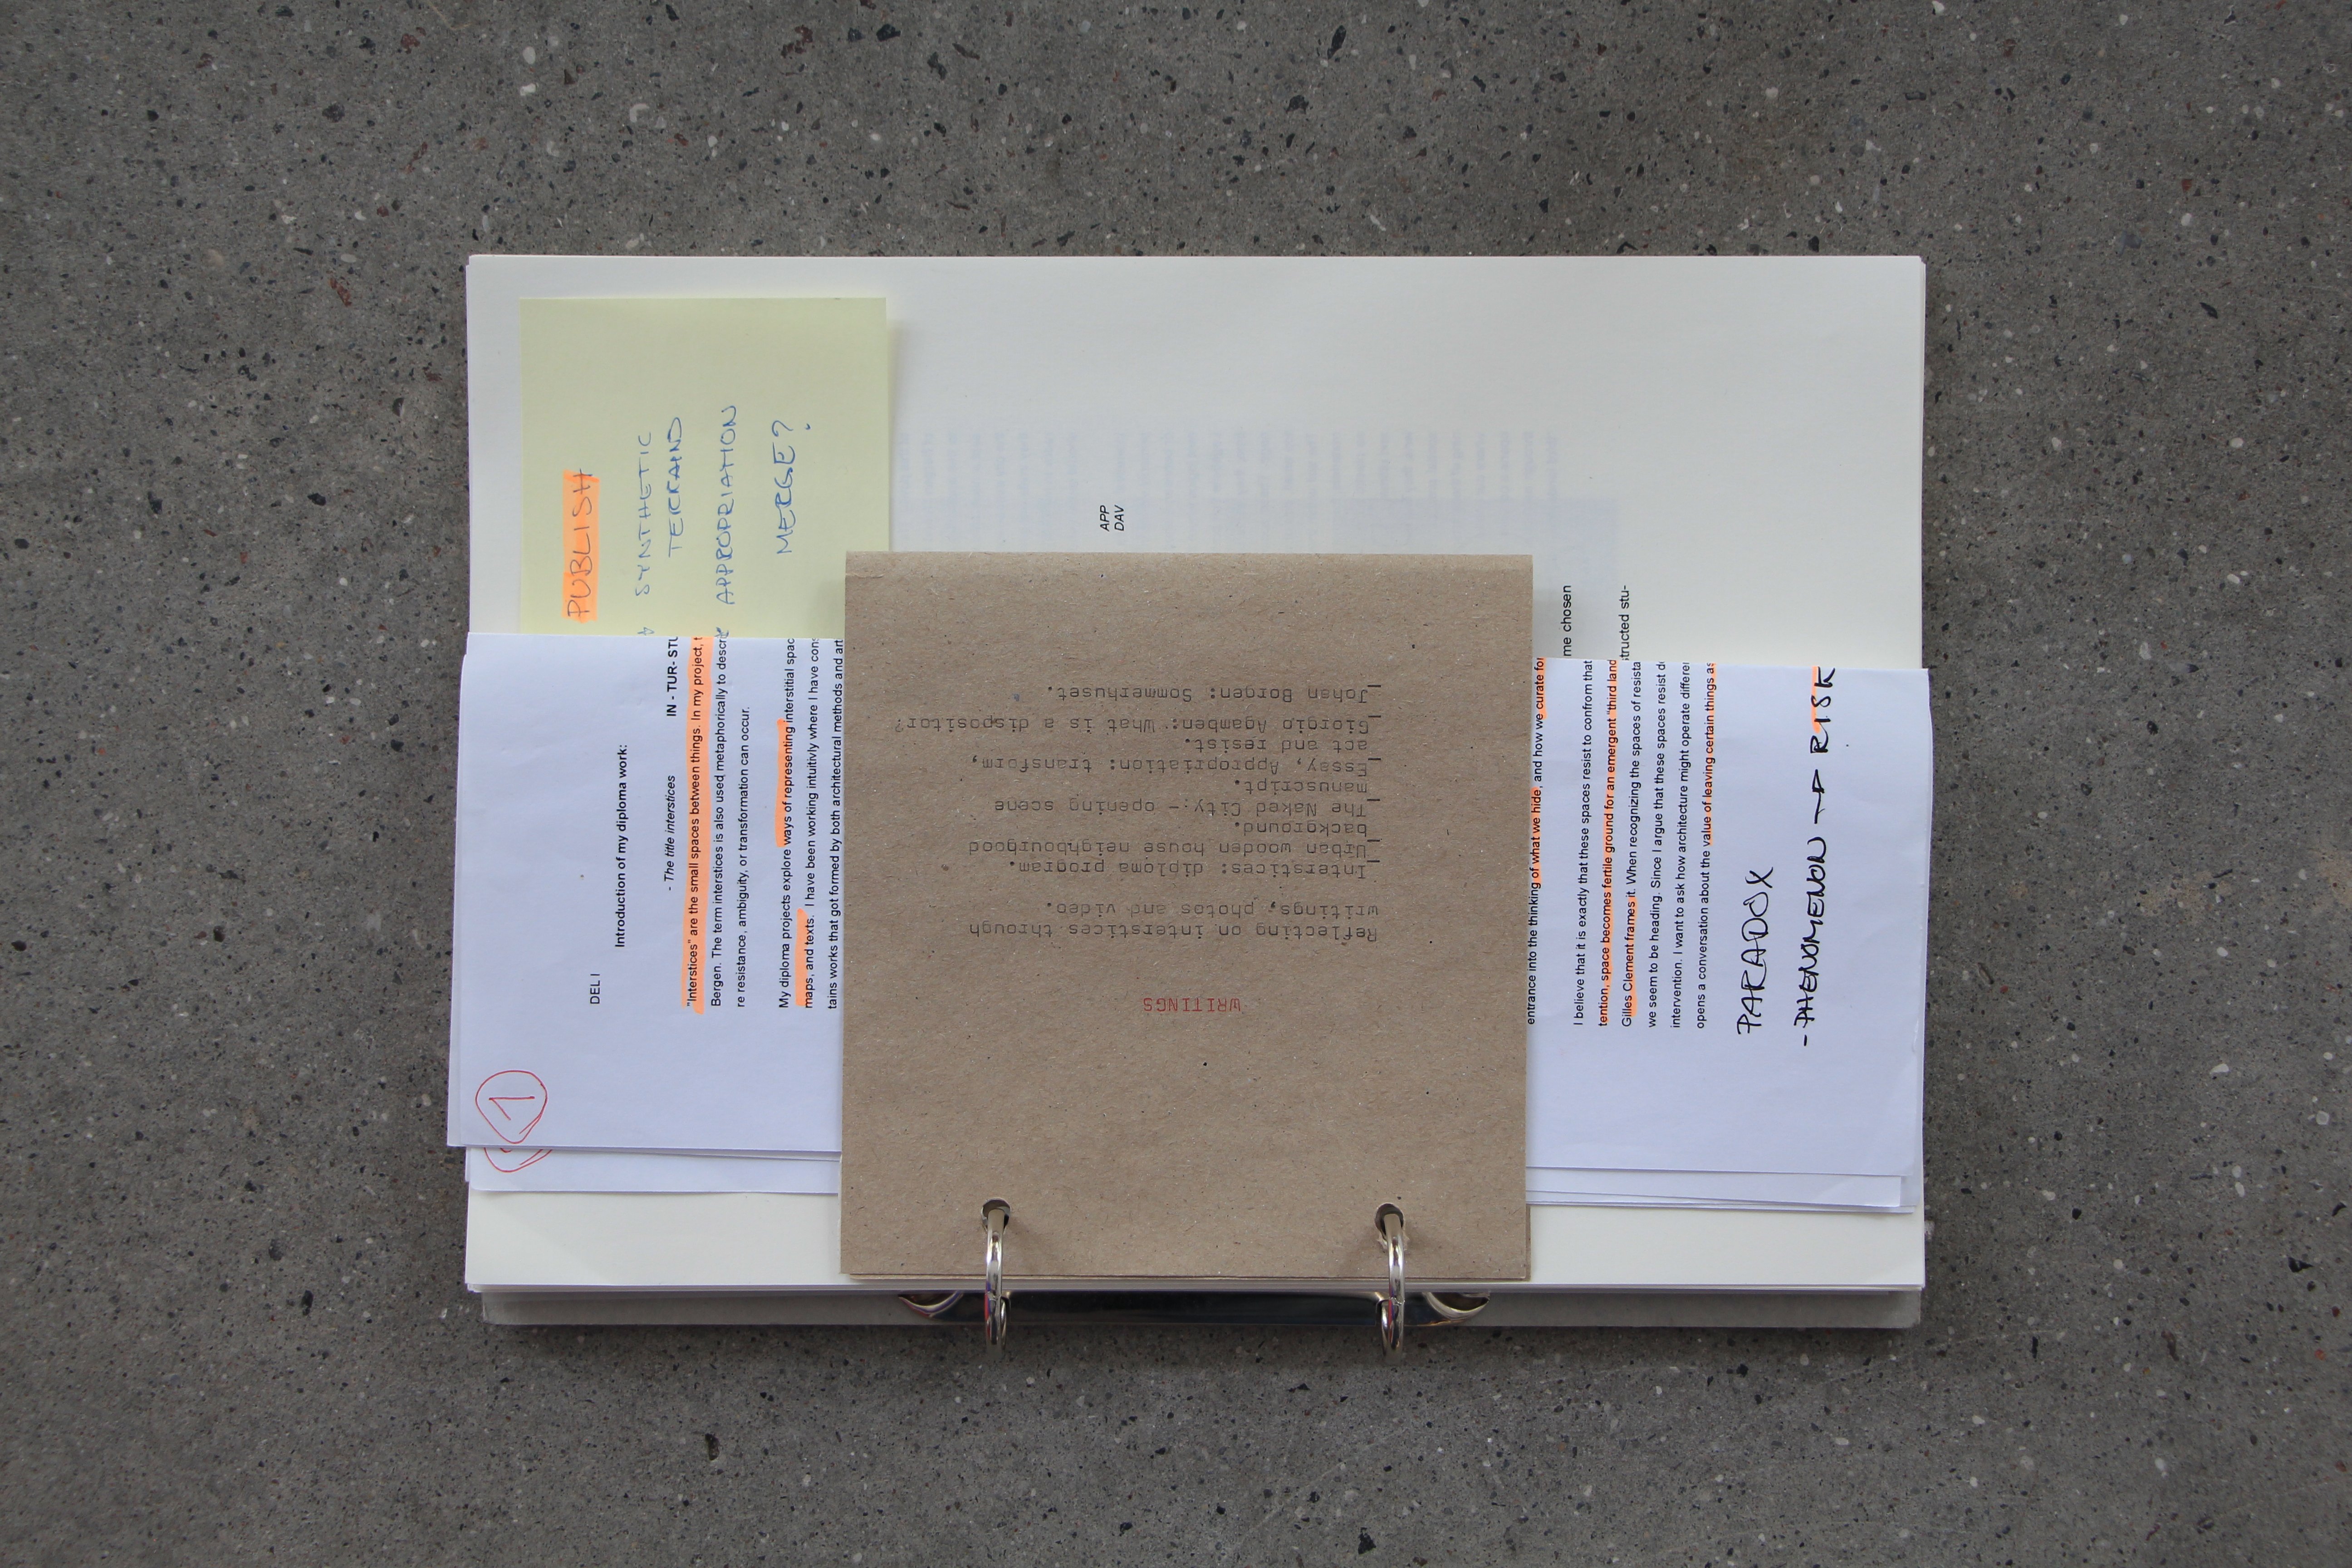 PUBLISH
SYNTHETIC
TERRAIND
APPROPRIATION
MERGE?
APP
DAV
1
DEL I
Introduction of my diploma work:
- The title interstices IN - TUR- STU
"Interstices" are the small spaces between things. In my project,
Bergen. The term interstices is also used metaphorically to descri
re resistance, ambiguity, or transformation can occur.
My diploma projects explore ways of representing interstitial spac
maps, and texts. I have been working intuitivly where I have cons
tains works that got formed by both architectural methods and art
WRITINGS
Reflecting on interstices through
writings, photos and video.
_Interstices: diploma program.
_Urban wooden house neighbourgood
background.
_The Naked City:- opening scene
manuscript.
_Essay, Appropriation: transform,
act and resist.
_Giorgio Agamben: What is a dispositor?
_Johan Borgen: Sommerhuset.
me chosen
tructed stu-
entrance into the thinking of what we hide, and how we curate for
I believe that it is exactly that these spaces resist to confrom that
tention, space becomes fertile ground for an emergent "third land
Gilles Clement frames it. When recognizing the spaces of resista
we seem to be heading. Since I argue that these spaces resist d
intervention. I want to ask how architecture might operate differen
opens a conversation about the value of leaving certain things as
PARADOX
- PHENOMENON → RISK